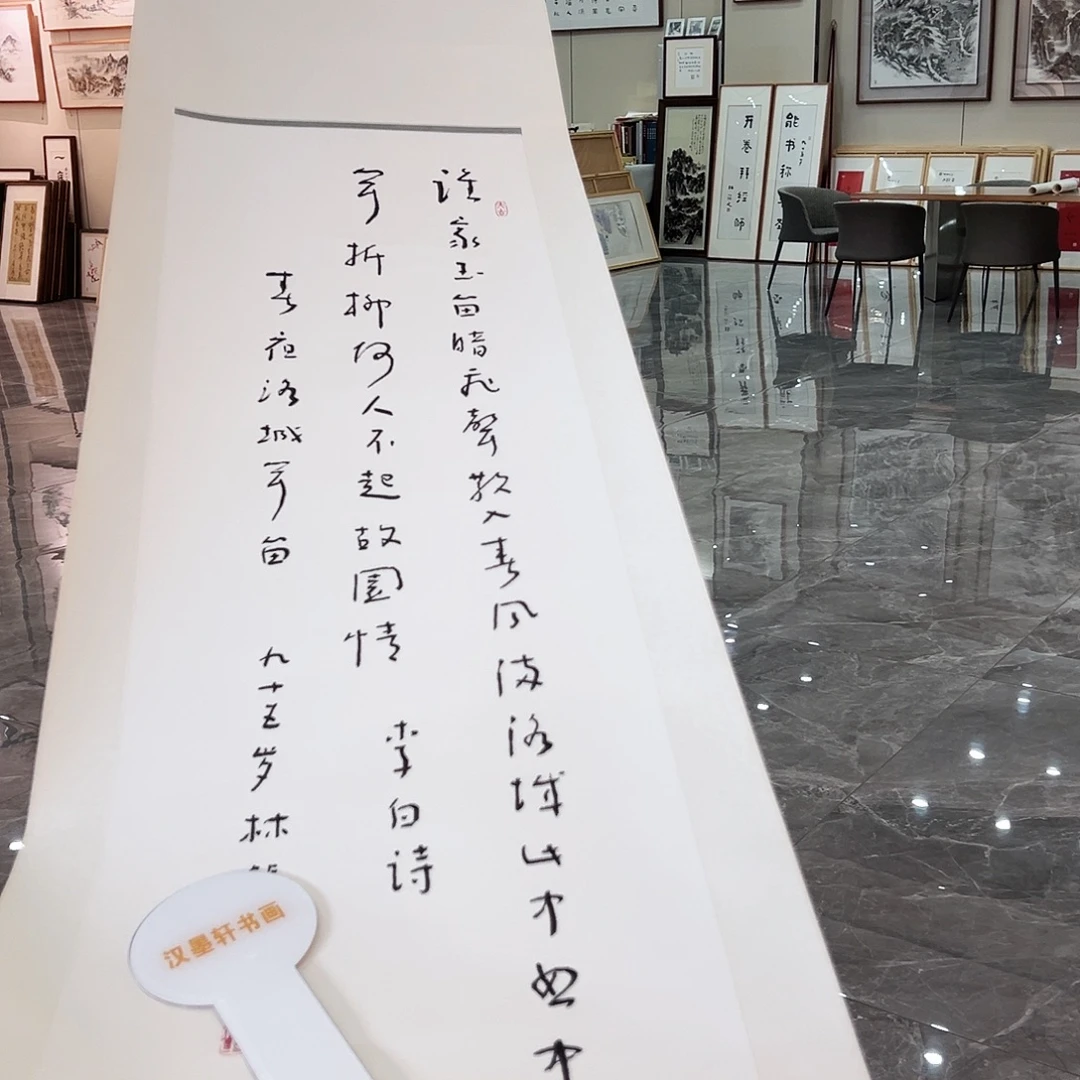 谁家玉笛暗飞聲散入春风满洛城此夜曲中
闻折柳何人不起故園情 李白诗
春夜洛城闻笛 九十五岁林
汉墨轩书画
能书称
开卷拜经師